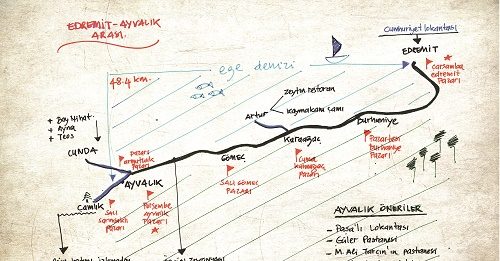 EDREMİT-AYVALIK
ARASI.
Cumhuriyet Lokantası
EDREMİT
Çarşamba
edremit
Pazarı
48.4 km.
ege denizi
zeytin restoran
Artur
Kaymakam çamı
+ Bay Nihat
+ Ayna
+ Teos
CUNDA
Pazarı
AYVALIK
Çamlık
Salı
Pazarı
Perşembe
ayvalık
Pazarı
GÖMEÇ
SALI GÖMEÇ
PAZARI
Karaağaç
Cuma
karaağaç
Pazarı
Burhaniye
Pazartesi
burhaniye
Pazarı
AYVALIK ÖNERİLER
- Paşalı Lokantası
- Güler Pastanesi
- M. Ali Tarçın'ın pastanesi